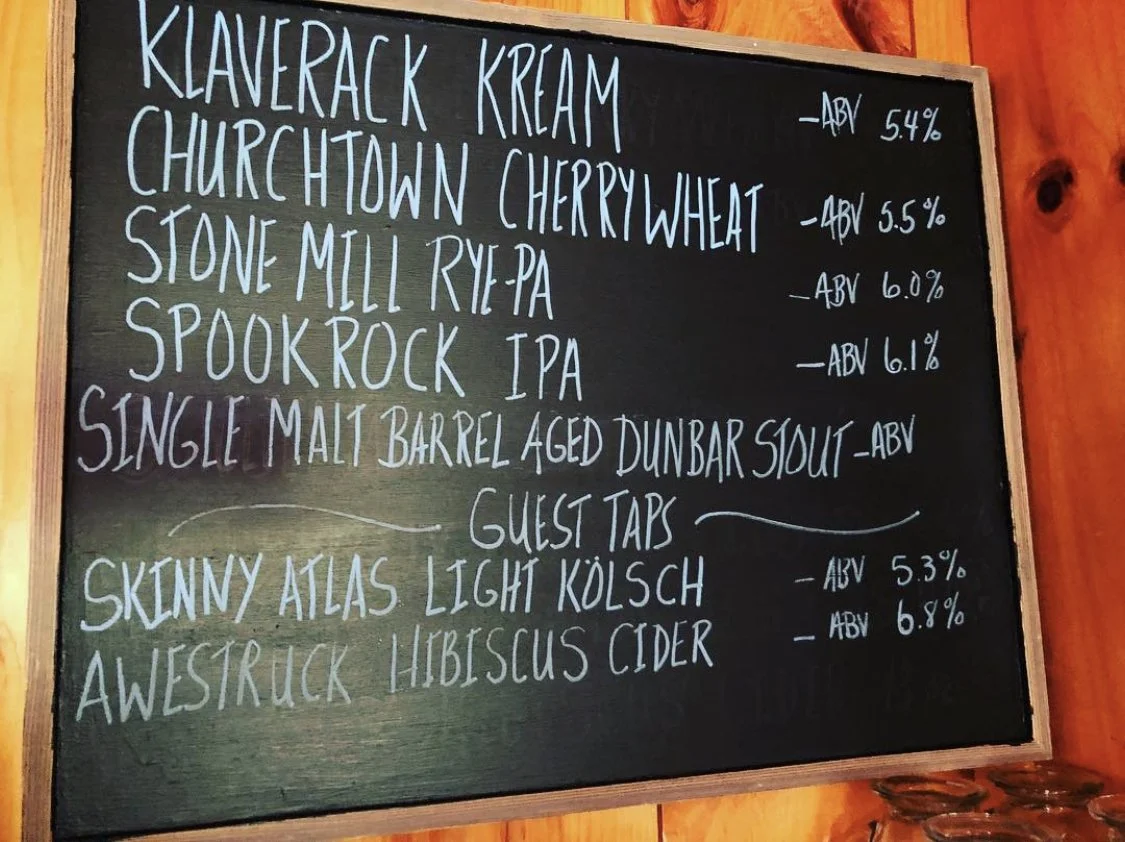 KLAVERACK KREAM –ABV 5.4%
CHURCHTOWN CHERRY WHEAT –ABV 5.5%
STONE MILL RYE-PA –ABV 6.0%
SPOOKROCK IPA –ABV 6.1%
SINGLE MALT BARREL AGED DUNBAR STOUT –ABV
GUEST TAPS
SKINNY ATLAS LIGHT KÖLSCH – ABV 5.3%
AWESTRUCK HIBISCUS CIDER – ABV 6.8%